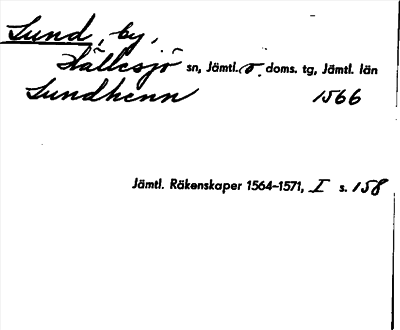 Lund, by,
Hällesjö sn, Jämtl. ö. doms. tg, Jämtl. län
Lundhenn 1566
Jämtl. Räkenskaper 1564-1571, I s. 158